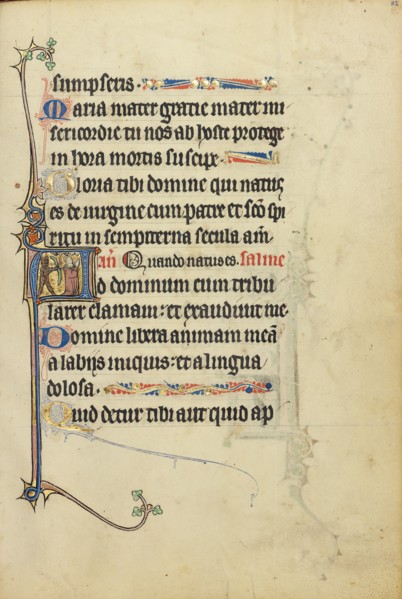 82
sumpseris.
Maria mater gratie mater mi
sericordie tu nos ab hoste protege
in hora mortis suscipe.
Gloria tibi domine qui natus
es de uirgine cum patre et sco spi
ritu in sempiterna secula am
an Quando natus es. salme
Ad dominum cum tribu
larer clamaui: et exaudiuit me.
Domine libera animam mea
a labijs iniquis: et a lingua
dolosa.
Quid detur tibi aut quid ap